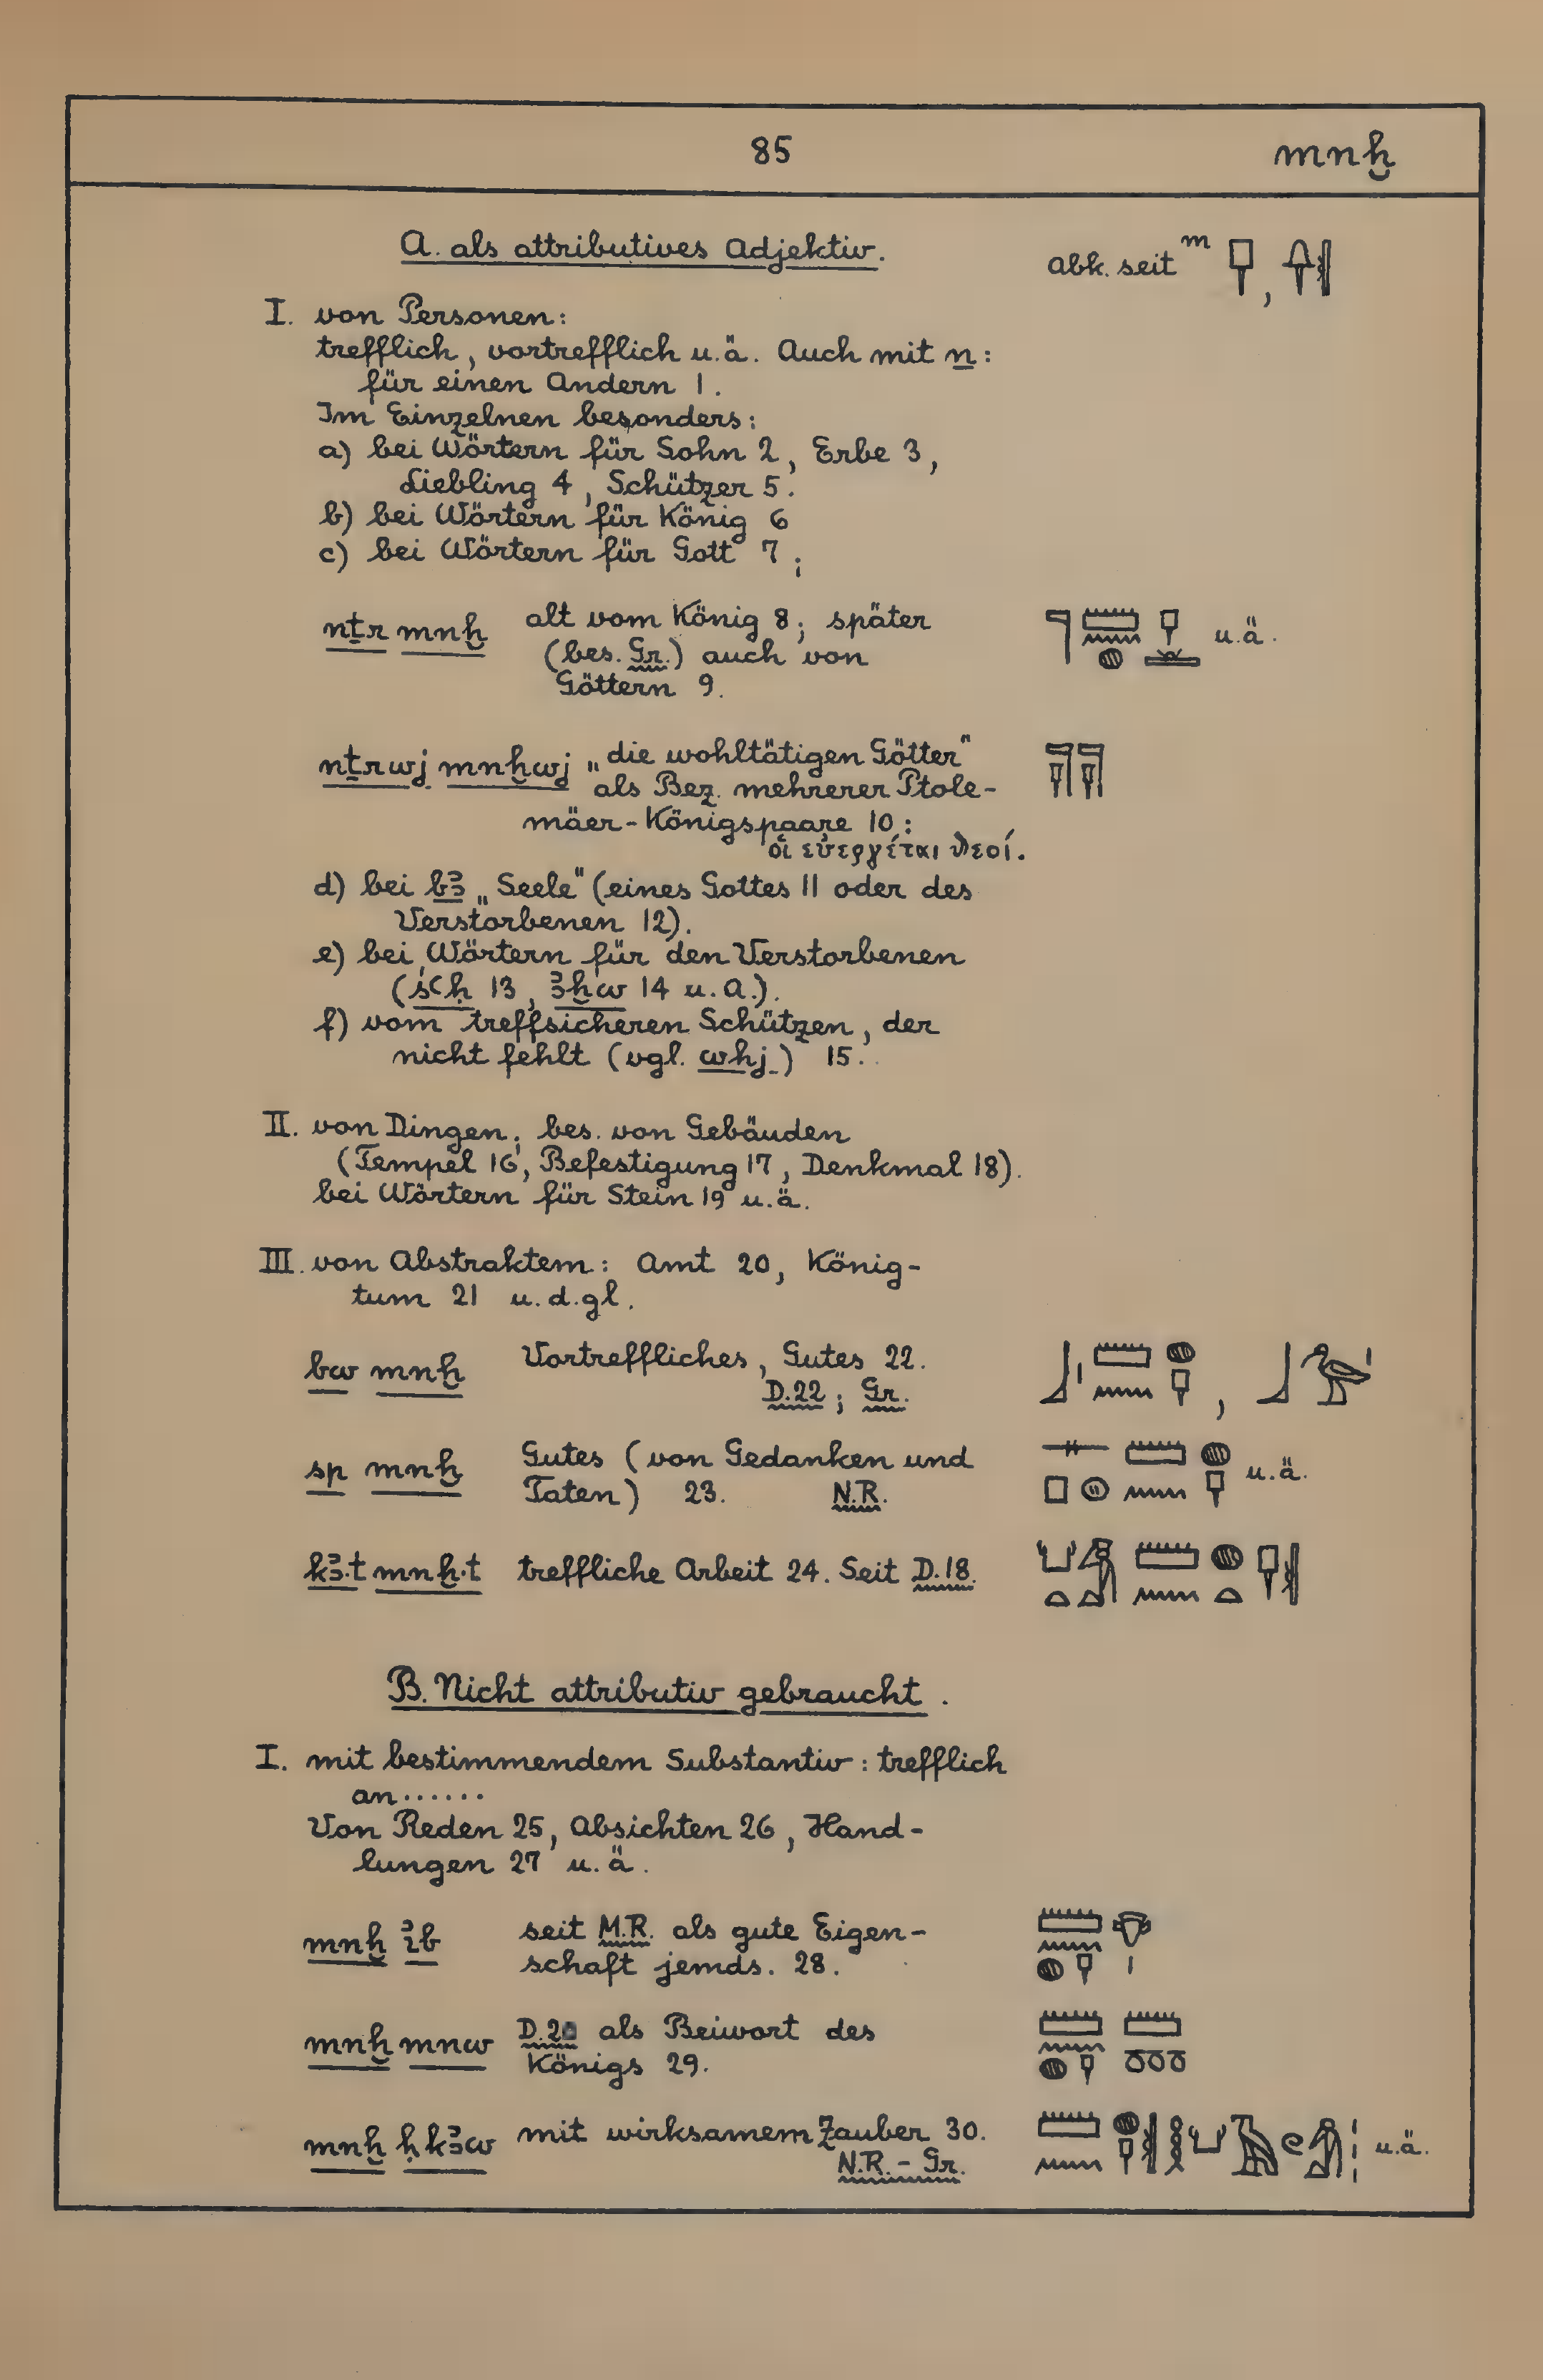 85 mnḫ
A. als attributives Adjektiv. abk. seit m
I. von Personen:
trefflich, vortrefflich u.ä. Auch mit n:
für einen Andern 1.
Im Einzelnen besonders:
a) bei Wörtern für Sohn 2, Erbe 3,
Liebling 4, Schützer 5.
b) bei Wörtern für König 6
c) bei Wörtern für Gott 7;
nṯr mnḫ alt vom König 8; später u.ä.
(bes. Gr.) auch von
Göttern 9.
nṯrwj mnḫwj „die wohltätigen Götter"
als Bez. mehrerer Ptole-
mäer-Königspaare 10:
οἱ εὐεργέται θεοί.
d) bei bꜣ „Seele" (eines Gottes 11 oder des
Verstorbenen 12).
e) bei Wörtern für den Verstorbenen
(śꜥḥ 13, ꜣḫw 14 u.a.).
f) vom treffsicheren Schützen, der
nicht fehlt (vgl. whj) 15.
II. von Dingen; bes. von Gebäuden
(Tempel 16, Befestigung 17, Denkmal 18).
bei Wörtern für Stein 19 u.ä.
III. von Abstraktem: Amt 20, König-
tum 21 u.d.gl.
bw mnḫ Vortreffliches, Gutes 22. ,
D.22; Gr.
sp mnḫ Gutes (von Gedanken und u.ä.
Taten) 23. N.R.
kꜣ·t mnḫ·t treffliche Arbeit 24. Seit D.18.
B. Nicht attributiv gebraucht.
I. mit bestimmendem Substantiv: trefflich
an......
Von Reden 25, Absichten 26, Hand-
lungen 27 u.ä.
mnḫ ı͗b seit M.R. als gute Eigen-
schaft jemds. 28.
mnḫ mnw als Beiwort des
Königs 29.
mnḫ ḥkꜣw mit wirksamem Zauber 30. u.ä.
N.R.-Gr.